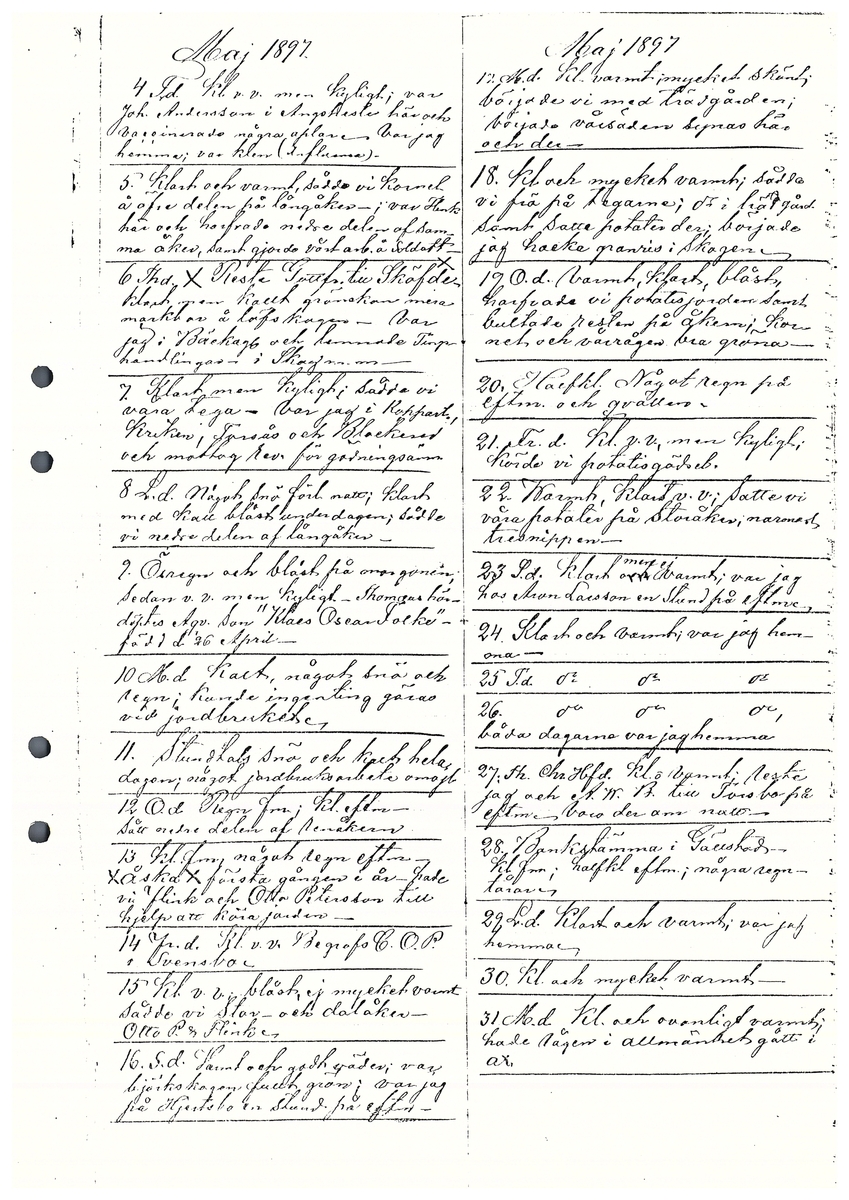 Maj 1897.
4 T.d. Kl v. v. men kyligt; var
Joh. Andersson i här och
vaccinerade några aplar. Var jag
hemma; var klen (Influensa)-
5. Klart och varmt, sådde vi kornet
å öfre delen på långåker -; var Flink
här och harfvade nedre delen af sam-
ma åker, samt gjorde vårt arb. å
6 Thd. X Reste Gottfr. till Sköfde X
klart men kallt grönskan mera
märkbar å löfskogen - Var
jag i och lemnade
handlingar i Skog m.m -
7. Klart men kyligt; sådde vi
våra tega - Var jag i
och Blackered
och mottog rev. för gödningsämn
8 L.d. Något snö förl. natt; klart
med kall blåst under dagen; sådde
vi nedre delen af långåker -
9. Ösregn och blåst på morgonen,
sedan v. v. men kyligt - Thomas här-
döptes Aqv. son "Klaes Oscar Folke" -
född d. 26 April -
10 M.d Kallt, något snö och
regn; kunde ingenting göras
vid jordbruket
11. Stundtals snö och kallt hela
dagen; något jordbruksarbete omöjl
12 O.d Regn fm; kl. eftm -
Sått nedre delen af renåkern
13 kl. fm, något regn eftm -
X Åska X första gången i år - hade
vi Flink och Otto Petersson till
hjelp att köra jorden -
14 Fr.d. Kl. v. v. Begrofs C. O. P.
i Svensbo
15 Kl. v. v.; blåst, ej mycket varmt
sådde vi Stor- och dalåker -
Otto P. & Flink
16. S.d. Varmt och godt väder; var
björkskogen fullt grön; var jag
på Hjertsbo en stund på eftm -
Maj 1897
17. M.d. Kl. varmt; mycket skönt;
började vi med trädgården;
började vårsäden synas här
och der -
18. Kl och mycket varmt; sådde
vi frö på tegarne; do i trädgård
samt satte potater der; började
jag hacka granris i skogen
19 O.d. Varmt, klart, blåst,
harfvade vi potatisjorden samt
bultade resten på åkern; kor-
net och vårrågen bra gröna -
20. Halfkl. Något regn på
eftm. och qvällen -
21. Fr. d. Kl. v. v. men kyligt;
körde vi potatisgödsel.
22. Varmt, klart v. v.; satte vi
våra potater på Storåker; närmast
tresnippen -
23 S.d. Klart men ej varmt; var jag
hos Aron Larsson en stund på eftm
24. Klart och varmt; var jag hem-
ma -
25 T.d. do do do
26. do do do,
båda dagarna var jag hemma
27. Th. Chr. Hfd. kl. o varmt; reste
jag och A. W. B. till Torsbo på
eftm. Voro der om natt. -
28. Bankstämma i Gällstad -
Kl. fm; halfkl eftm; några regn-
tårar
29 L.d. Klart och varmt; var jag
hemma
30. Kl. och mycket varmt -
31 M.d Kl. och ovanligt varmt;
hade rågen i allmänhet gått i
ax.